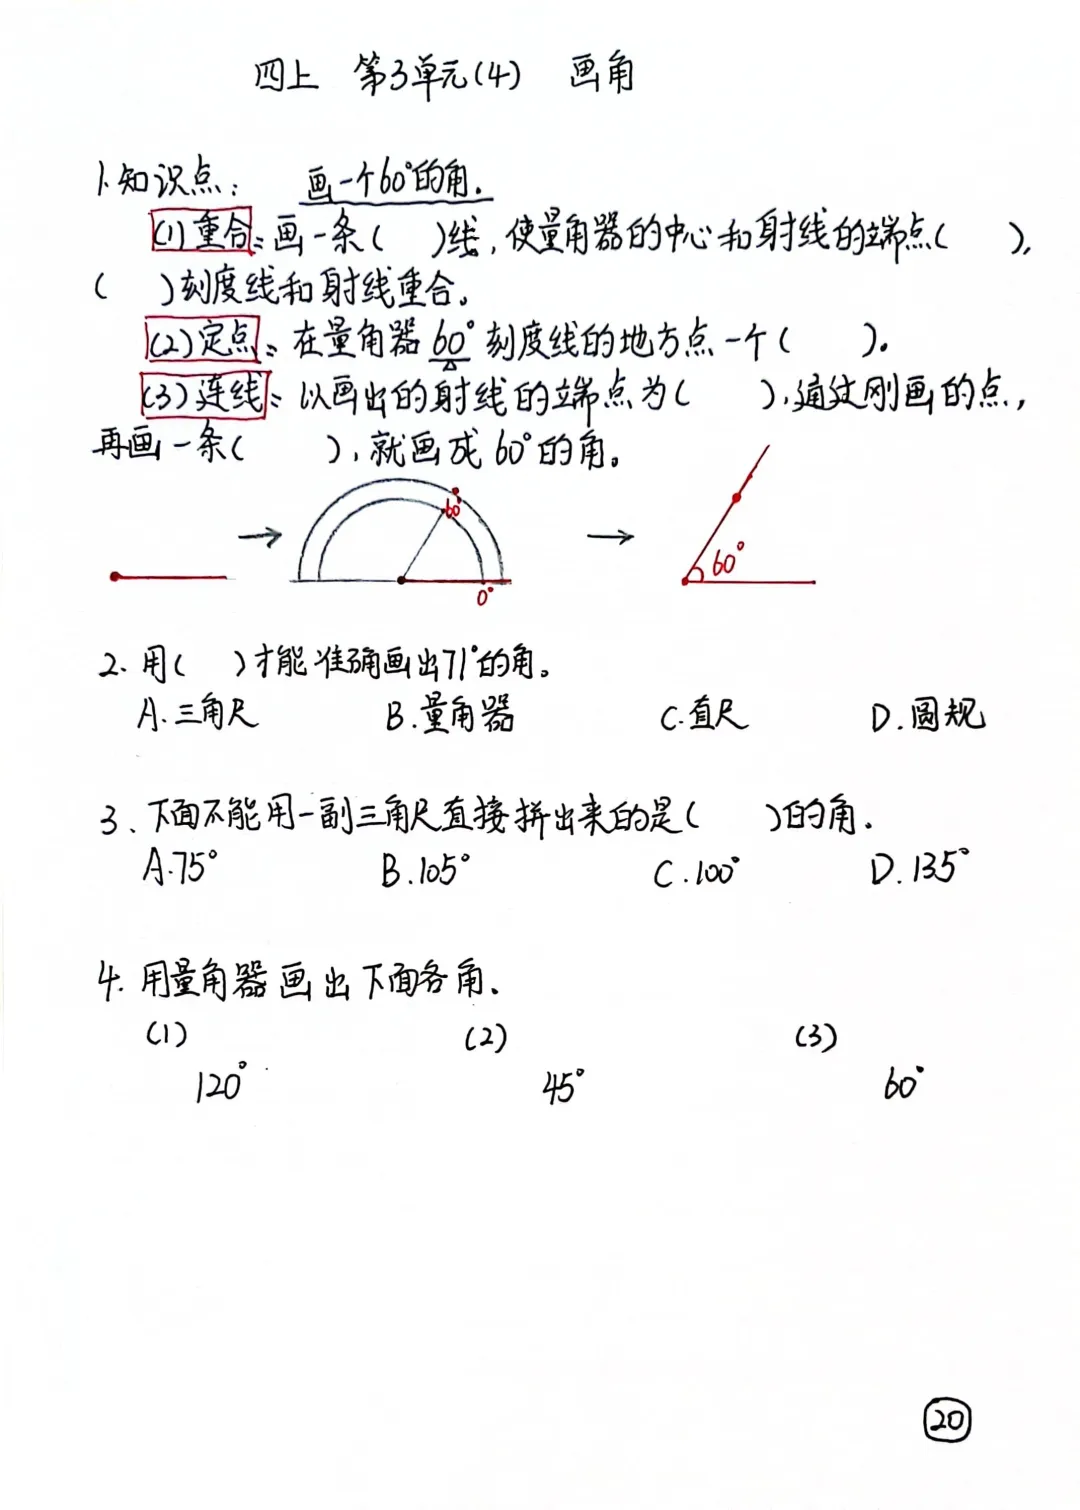 四上 第3单元(4) 画角
1.知识点: 画一个60°的角.
(1)重合:画一条( )线,使量角器的中心和射线的端点( ),
( )刻度线和射线重合。
(2)定点:在量角器60°刻度线的地方点一个( )。
(3)连线:以画出的射线的端点为( ),通过刚画的点,
再画一条( ),就画成60°的角。
60°
0°
60°
2.用( )才能准确画出71°的角。
A.三角尺 B.量角器 C.直尺 D.圆规
3、下面不能用一副三角尺直接拼出来的是( )的角.
A.75° B.105° C.100° D.135°
4.用量角器画出下面各角.
(1) (2) (3)
120° 45° 60°
20